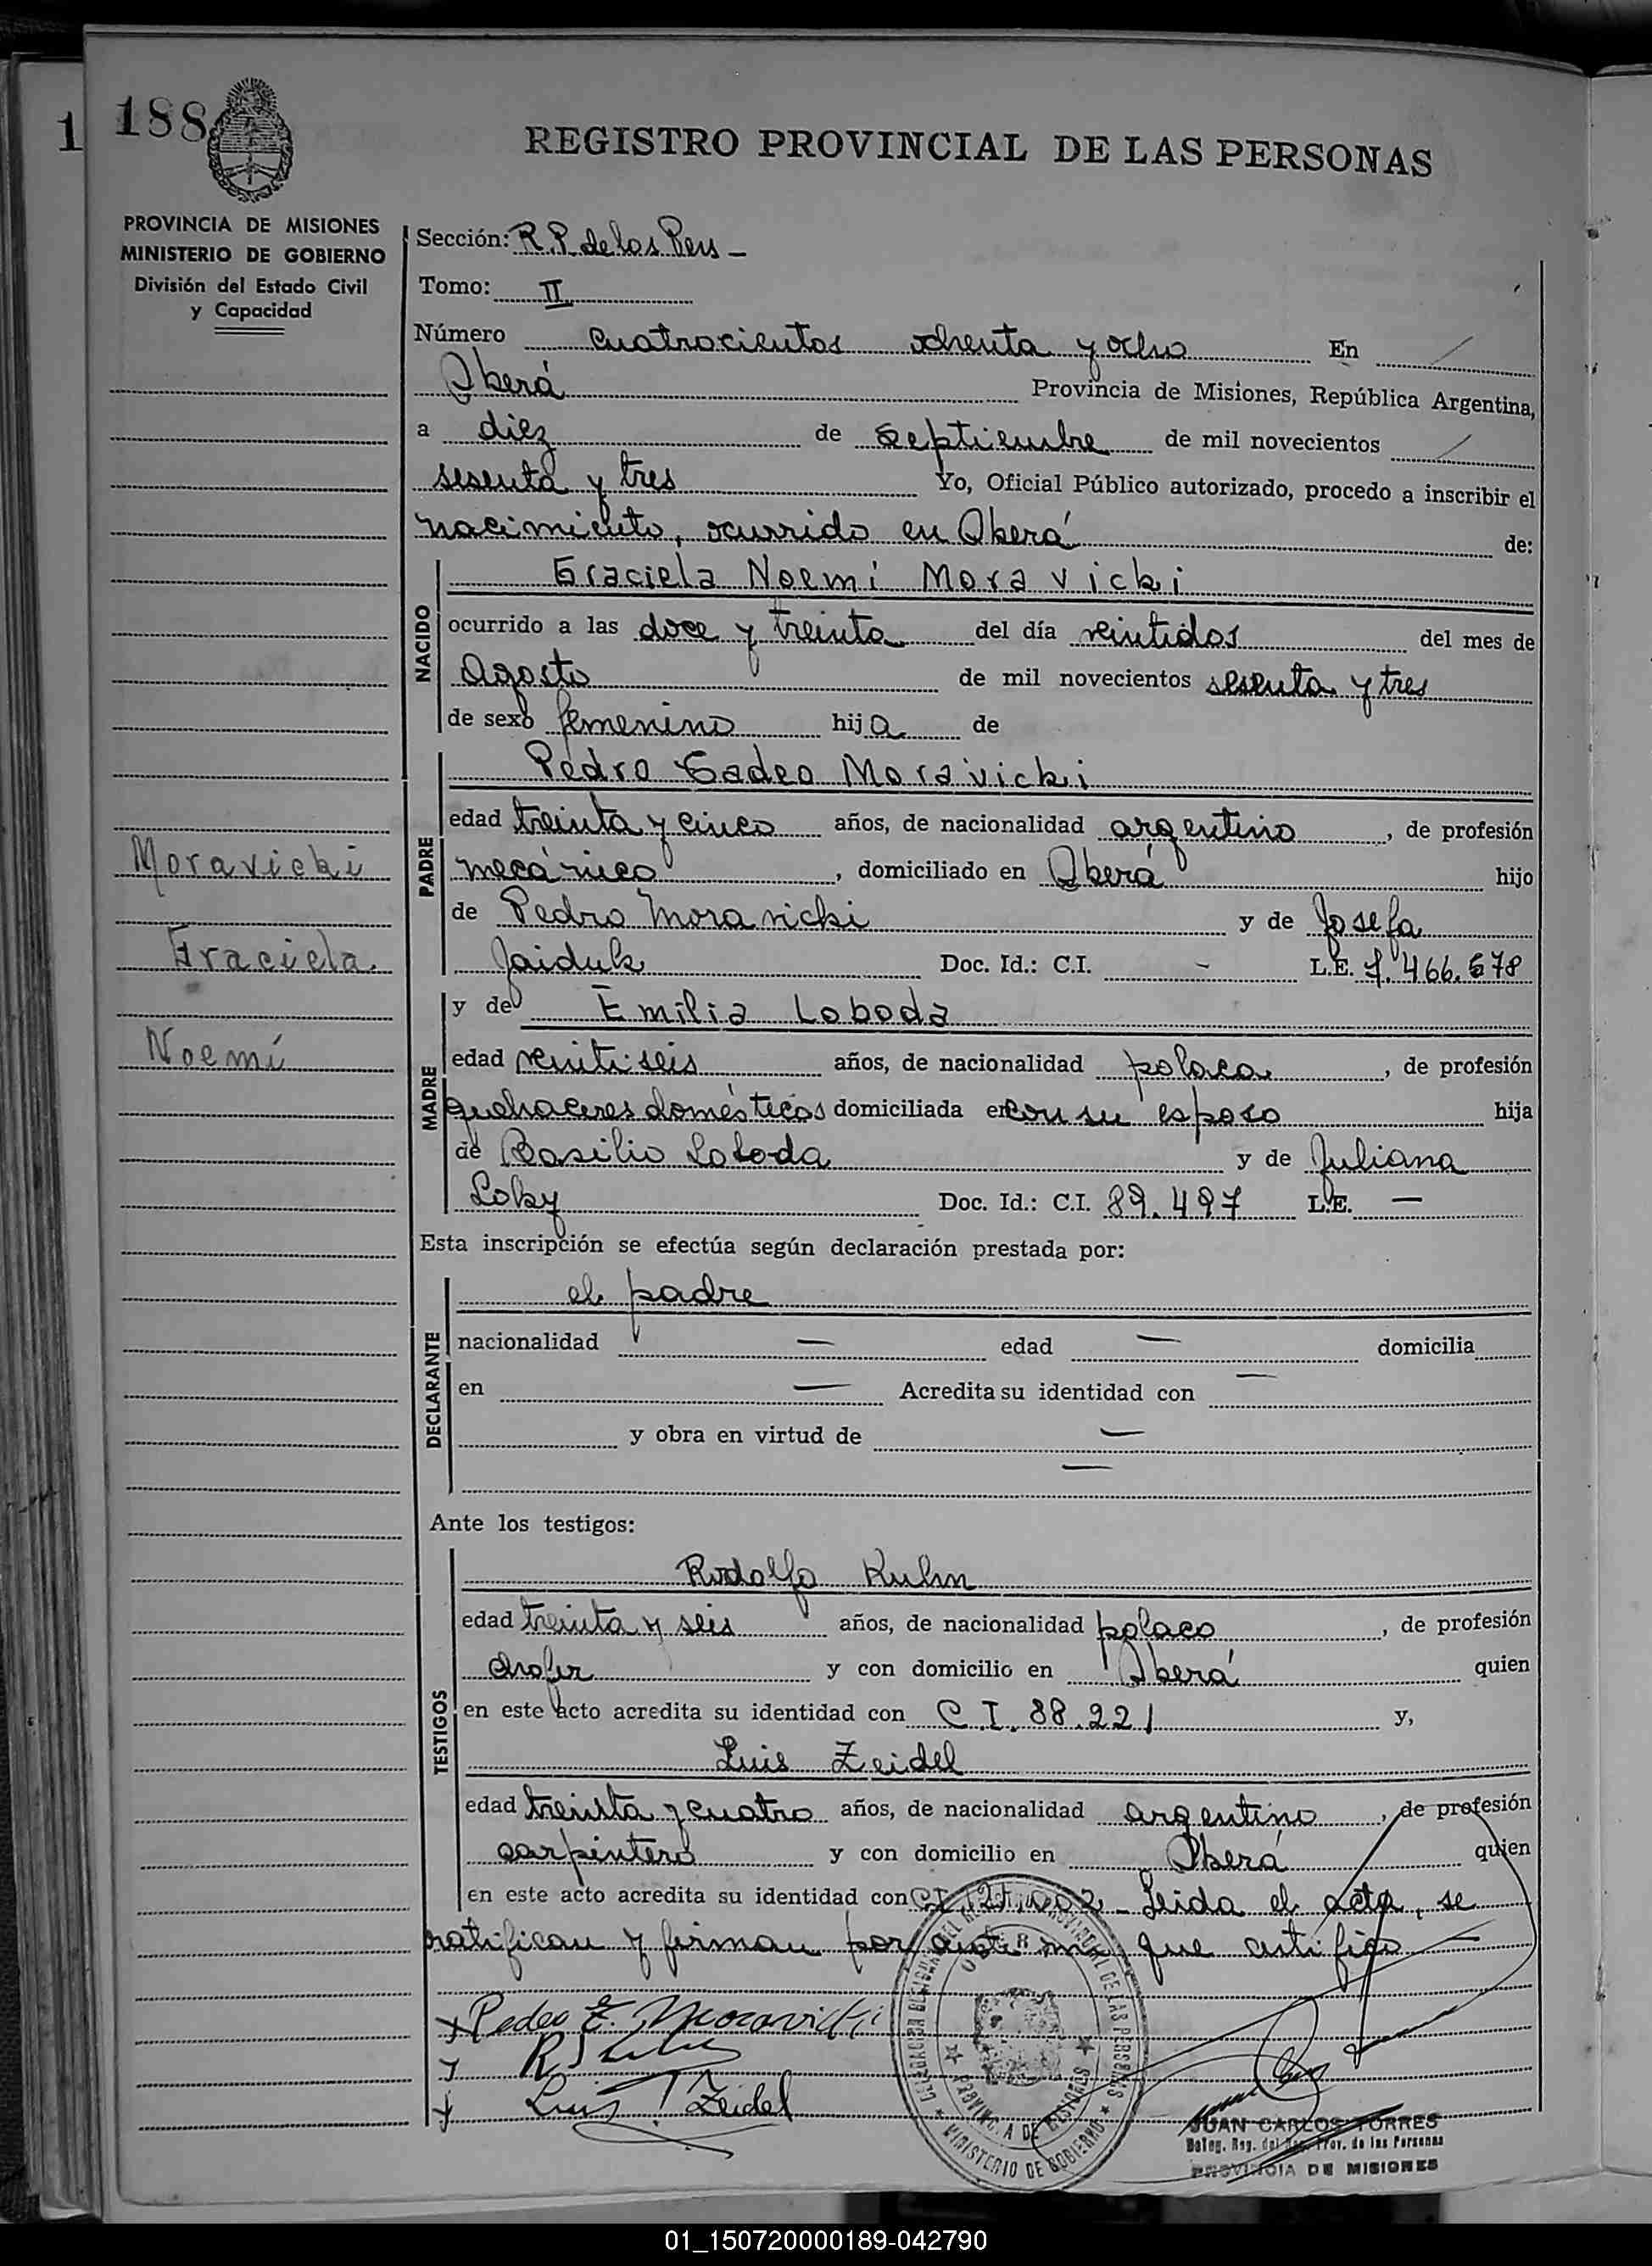 1 188
REGISTRO PROVINCIAL DE LAS PERSONAS
PROVINCIA DE MISIONES
MINISTERIO DE GOBIERNO
División del Estado Civil
y Capacidad
Moravicki
Graciela
Noemí
Sección: R.P. de los Pers -
Tomo: II
Número cuatrocientos ochenta y ocho En
Oberá Provincia de Misiones, República Argentina,
a diez de septiembre de mil novecientos
sesenta y tres Yo, Oficial Público autorizado, procedo a inscribir el
nacimiento, ocurrido en Oberá de:
NACIDO
Graciela Noemi Moravicki
ocurrido a las doce y treinta del día veintidos del mes de
Agosto de mil novecientos sesenta y tres
de sexo femenino hija de
PADRE
Pedro Eadeo Moravicki
edad treinta y cinco años, de nacionalidad argentino, de profesión
mecánico, domiciliado en Oberá hijo
de Pedro Moravicki y de Josefa
Jaiduk Doc. Id.: C.I. - L.E. 7.466.678
MADRE
y de Emilia Loboda
edad veintiseis años, de nacionalidad polaca, de profesión
quehaceres domésticos domiciliada en con su esposo hija
de Basilio Loboda y de Juliana
Loky Doc. Id.: C.I. 89.497 L.E. —
Esta inscripción se efectúa según declaración prestada por:
DECLARANTE
el padre
nacionalidad — edad — domicilia
en — Acredita su identidad con —
y obra en virtud de —
—
Ante los testigos:
TESTIGOS
Rodolfo Kuhn
edad treinta y seis años, de nacionalidad polaco, de profesión
chofer y con domicilio en Oberá quien
en este acto acredita su identidad con C.I. 88.221 y,
Luis Zeidel
edad treinta y cuatro años, de nacionalidad argentino, de profesión
carpintero y con domicilio en Oberá quien
en este acto acredita su identidad con C.I. - Leida el acta, se
ratifican y firman por ante mi que certifico —
Pedro E. Moravicki
Luis Zeidel
MINISTERIO DE GOBIERNO
JUAN CARLOS TORRES
Deleg. Reg. del Reg. Prov. de las Personas
PROVINCIA DE MISIONES
01_150720000189-042790